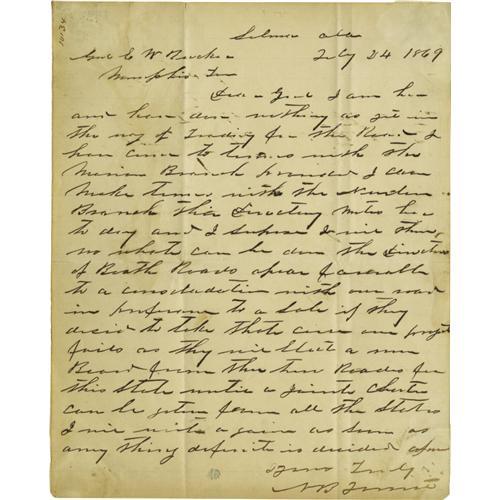 Selma ala
Genl E W Rucker July 24 1869
Memphis Ten
Dear Genl I am here
and have don nothing as yet in
the way of Trading for the Road I
have come to terms with the
Merion Branch provided I can
make terms with the Newbern
Branch thar Directory metes here
to day and I supose I will then
no what can be don the Directors
of Boath Roads apear favorable
to a consoladation with our road
in preference to a Sale if they
decid to take that corse our project
fails as they will Elect a new
Board from the two Roades for
this State until a jointe Charter
can be goten from all the States
I will write again as soon as
any thing defenit is decided apon
Yours Truly
N B Forrest